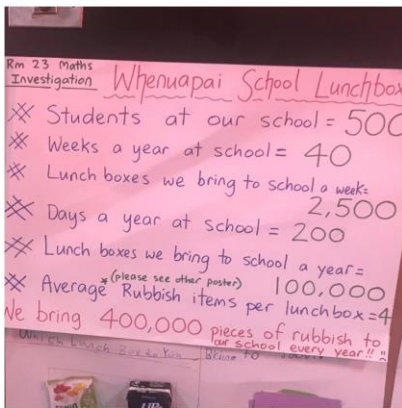 Rm 23 Maths
Investigation
Whenuapai School Lunchbox
Students at our school = 500
Weeks a year at school = 40
Lunch boxes we bring to school a week =
2,500
Days a year at school = 200
Lunch boxes we bring to school a year =
(please see other poster) 100,000
Average * Rubbish items per lunchbox = 4
We bring 400,000 pieces of rubbish to
our school every year!!
Which Lunch
UP